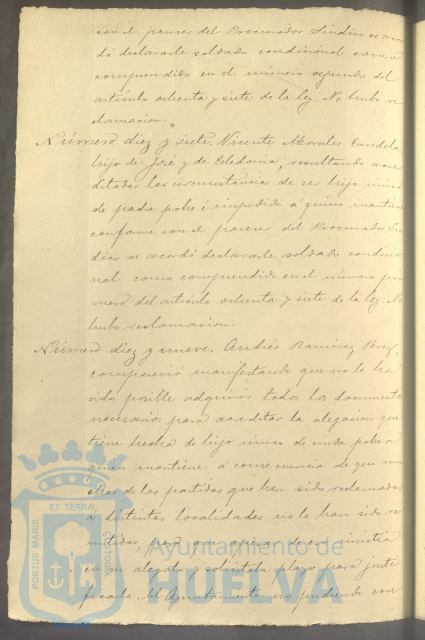 con el parecer del Procurador Síndico se acor
dó declararle soldado condicional como
comprendido en el número segundo del
artículo ochenta y siete de la ley. No hubo re
clamacion.
Número diez y siete. Vicente Morales Candela
hijo de José y de Celedonia; resultando acre
ditadas las circunstancias de ser hijo único
de padre pobre é impedido á quien mantiene
conforme con el parecer del Procurador Sín
dico se acordó declararle soldado condicio
nal como comprendido en el número pri
mero del artículo ochenta y siete de la ley. No
hubo reclamacion.
Número diez y nueve. Andrés Ramírez Perez,
compareció manifestando que no le ha
sido posible adquirir todos los documentos
necesarios para acreditar la alegacion que
tiene hecha de hijo único de viuda pobre á
quien mantiene á consecuencia de que mu
chas de las partidas que han sido reclamadas
á distintas localidades no le han sido re
mitidas, por que apesar de eso insistia
en su alegato y solicitaba plazo para justi
ficarla. El Ayuntamiento no pudiendo con
PORTUS MARIS
ET TERRAE
CUSTODIA
Ayuntamiento de
HUELVA